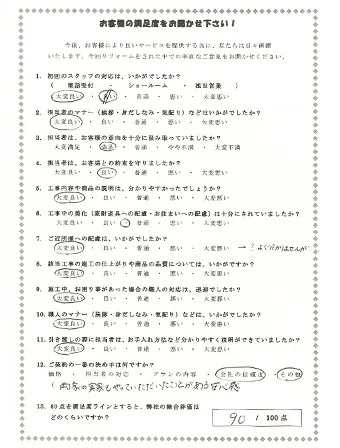 お客様の満足度をお聞かせ下さい！
今後、お客様により良いサービスを提供する為に、私たちは日々研鑽
いたします。今回リフォームをされた中での率直なご意見をお聞かせください。
1. 初回のスタッフの対応は、いかがでしたか？
（ 電話受付 ・ ショールーム ・ 担当営業 ）
大変良い ・ 良い ・ 普通 ・ 悪い ・ 大変悪い
2. 担当者のマナー（挨拶・身だしなみ・気配り）などはいかがでしたか？
大変良い ・ 良い ・ 普通 ・ 悪い ・ 大変悪い
3. 担当者は、お客様の意向を十分に汲み取っていましたか？
大変満足 ・ 満足 ・ 普通 ・ やや不満 ・ 大変不満
4. 担当者は、お客様との約束を守りましたか？
大変良い ・ 良い ・ 普通 ・ 悪い ・ 大変悪い
5. 工事内容や商品の説明は、分かりやすかったでしょうか？
大変良い ・ 良い ・ 普通 ・ 悪い ・ 大変悪い
6. 工事中の美化（家財道具への配慮・お住まいへの配慮）は十分にされていましたか？
大変良い ・ 良い ・ 普通 ・ 悪い ・ 大変悪い
7. ご近所様への配慮は、いかがでしたか？
大変良い ・ 良い ・ 普通 ・ 悪い ・ 大変悪い →？よく分かりませんが
8. 該当工事の施工の仕上がりや商品の品質については、いかがですか？
大変良い ・ 良い ・ 普通 ・ 悪い ・ 大変悪い
9. 施工中、お困り事があった場合の職人の対応は、迅速でしたか？
大変良い ・ 良い ・ 普通 ・ 悪い ・ 大変悪い
10. 職人のマナー（挨拶・身だしなみ・気配り）などは、いかがでしたか？
大変良い ・ 良い ・ 普通 ・ 悪い ・ 大変悪い
11. 引き渡しの際に担当者は、お手入れ方法など分かりやすく説明ができていましたか？
大変良い ・ 良い ・ 普通 ・ 悪い ・ 大変悪い
12. ご契約の一番の決め手は何ですか？
価格 ・ 担当者の対応 ・ プランの内容 ・ 会社の信頼度 ・ その他
（両家の実家もやっていただいたことがある安心感
13. 80点を満足度ラインとすると、弊社の総合評価は
どのくらいですか？ 90 / 100点